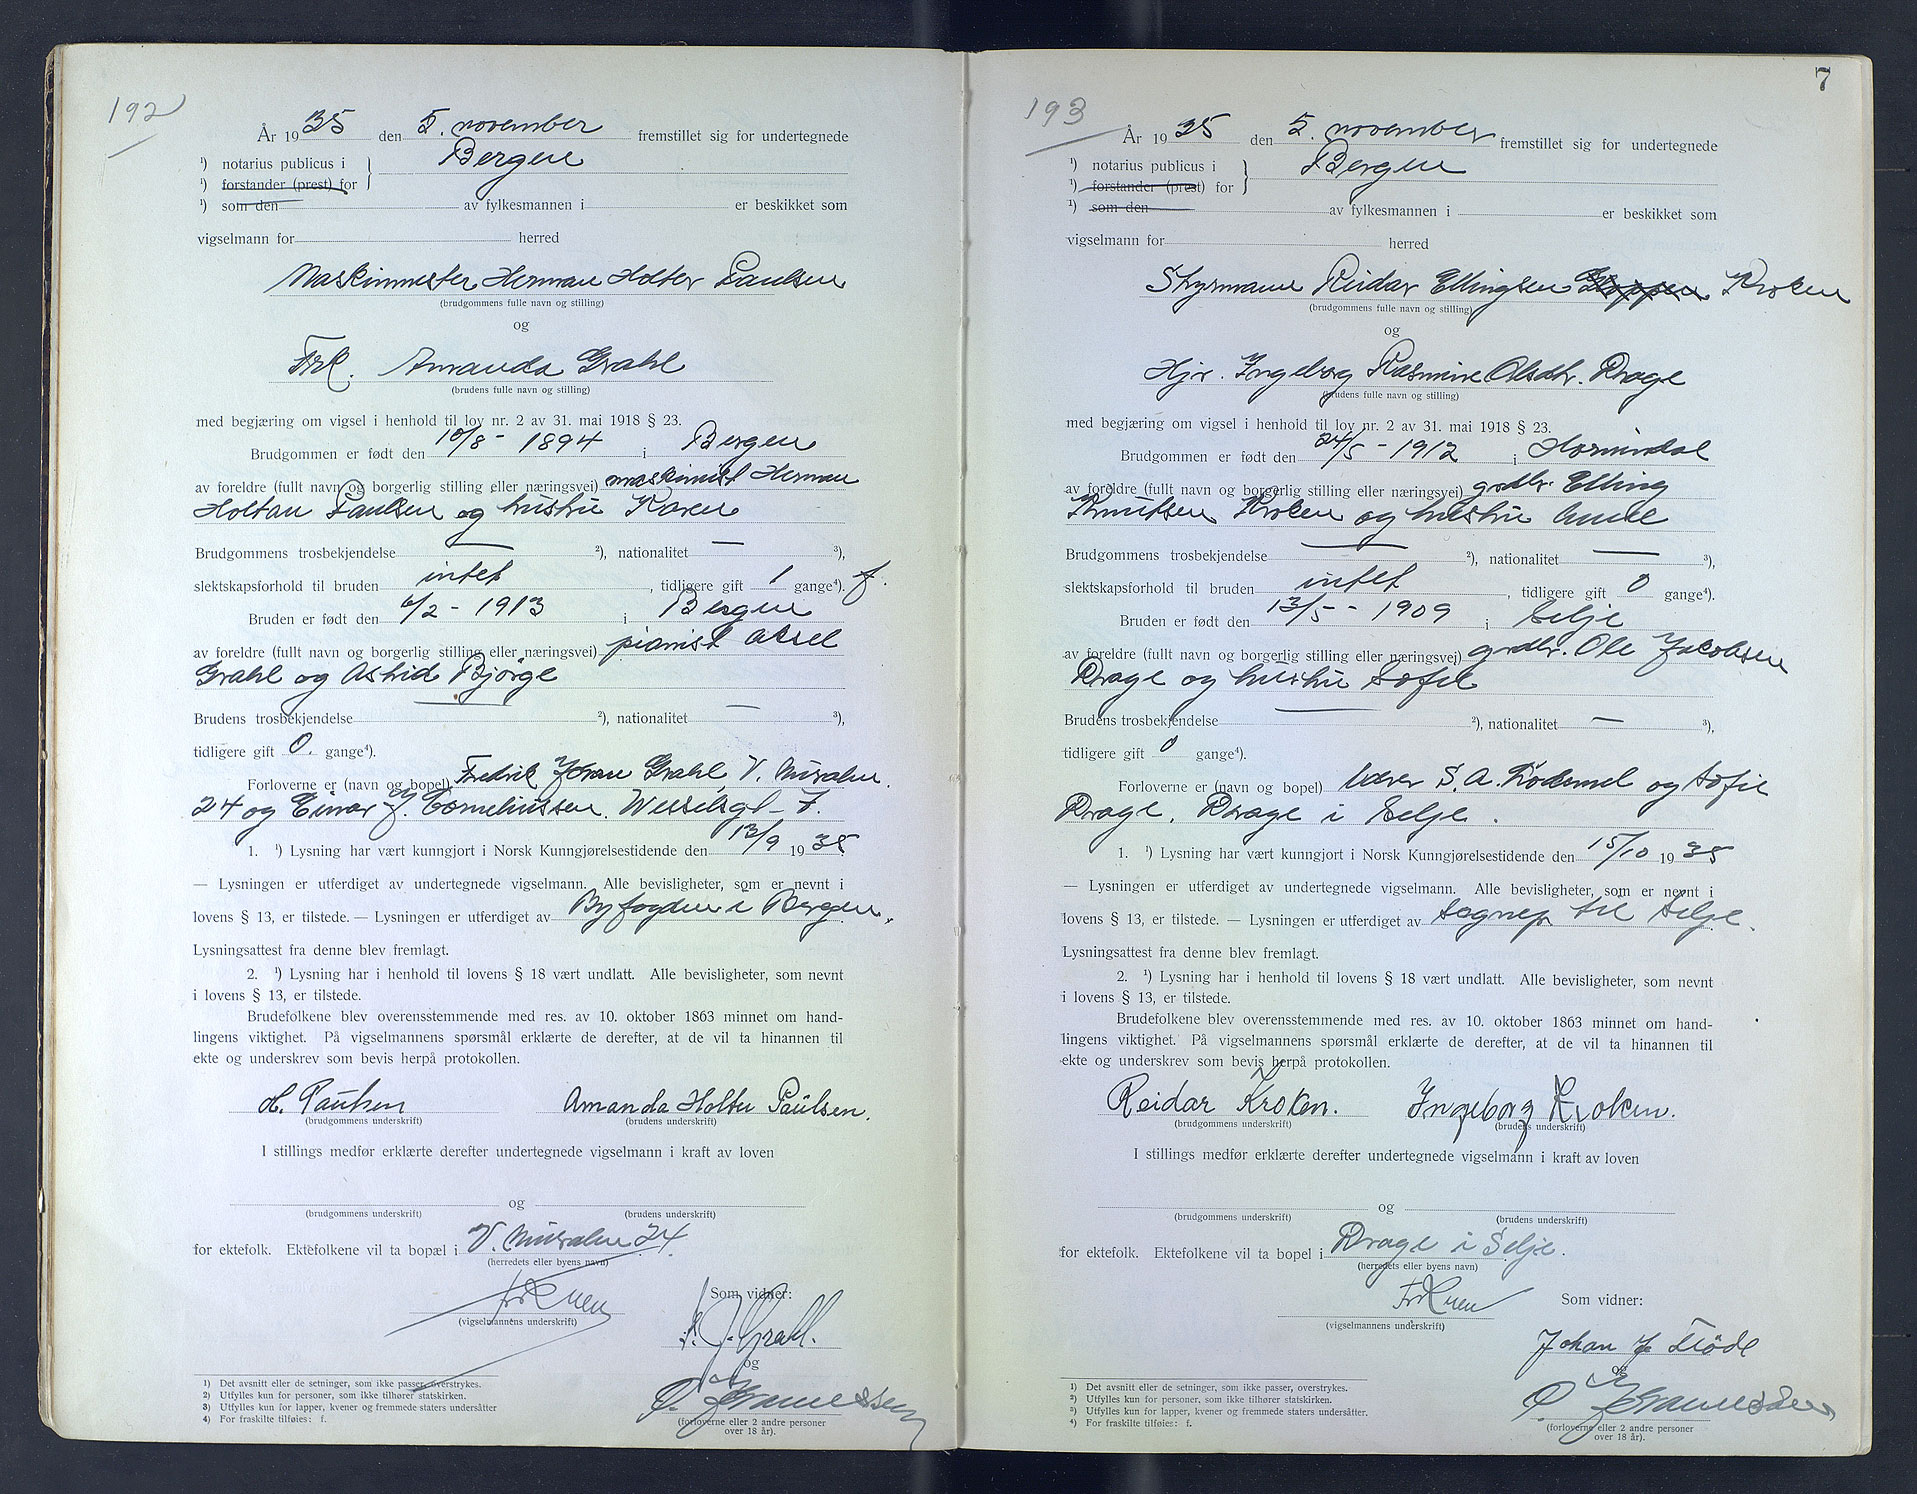 192
År 1935 den 5. november fremstillet sig for undertegnede
¹) notarius publicus i } Bergen
¹) forstander (prest) for
¹) som den av fylkesmannen i er beskikket som
vigselmann for herred
Maskinmester Herman Holter Paulsen
(brudgommens fulle navn og stilling)
og
Frk. Amanda Grahl
(brudens fulle navn og stilling)
med begjæring om vigsel i henhold til lov nr. 2 av 31. mai 1918 § 23.
Brudgommen er født den 10/8 - 1894 i Bergen
av foreldre (fullt navn og borgerlig stilling eller næringsvei) maskinist Herman
Holtan Paulsen og hustru Karen
Brudgommens trosbekjendelse — ²), nationalitet — ³),
slektskapsforhold til bruden intet, tidligere gift 1 gange⁴). f.
Bruden er født den 6/2 - 1913 i Bergen
av foreldre (fullt navn og borgerlig stilling eller næringsvei) pianist Aksel
Grahl og Astrid Bjørge
Brudens trosbekjendelse — ²), nationalitet — ³),
tidligere gift 0. gange⁴).
Forloverne er (navn og bopel) Fredrik Johan Grahl V. Muralm.
24 og Einar J. Corneliussen. Wesselsgt - 7.
1. ¹) Lysning har vært kunngjort i Norsk Kunngjørelsestidende den 13/9 1935
— Lysningen er utferdiget av undertegnede vigselmann. Alle bevisligheter, som er nevnt i
lovens § 13, er tilstede. — Lysningen er utferdiget av Byfogden i Bergen.
Lysningsattest fra denne blev fremlagt.
2. ¹) Lysning har i henhold til lovens § 18 vært undlatt. Alle bevisligheter, som nevnt
i lovens § 13, er tilstede.
Brudefolkene blev overensstemmende med res. av 10. oktober 1863 minnet om hand-
lingens viktighet. På vigselmannens spørsmål erklærte de derefter, at de vil ta hinannen til
ekte og underskrev som bevis herpå protokollen.
H. Paulsen Amanda Holter Paulsen.
(brudgommens underskrift) (brudens underskrift)
I stillings medfør erklærte derefter undertegnede vigselmann i kraft av loven
og
(brudgommens underskrift) (brudens underskrift)
for ektefolk. Ektefolkene vil ta bopæl i V. Muralm 24.
(herredets eller byens navn)
Som vidner:
(vigselmannens underskrift)
F. J. Grahl.
og
(forloverne eller 2 andre personer
over 18 år).
1) Det avsnitt eller de setninger, som ikke passer, overstrykes.
2) Utfylles kun for personer, som ikke tilhører statskirken.
3) Utfylles kun for lapper, kvener og fremmede staters undersåtter
4) For fraskilte tilføies: f.
7
193
År 1935 den 5. november fremstillet sig for undertegnede
¹) notarius publicus i } Bergen
¹) forstander (prest) for
¹) som den av fylkesmannen i er beskikket som
vigselmann for herred
Styrmann Reidar Ellingsen Kroken
(brudgommens fulle navn og stilling)
og
Hjv. Ingeborg Rasmine Olsdtr. Drage
(brudens fulle navn og stilling)
med begjæring om vigsel i henhold til lov nr. 2 av 31. mai 1918 § 23.
Brudgommen er født den 24/5 - 1912 i Hornindal
av foreldre (fullt navn og borgerlig stilling eller næringsvei) grdbr. Elling
Knutsen Kroken og hustru Anne
Brudgommens trosbekjendelse — ²), nationalitet — ³),
slektskapsforhold til bruden intet, tidligere gift 0 gange⁴).
Bruden er født den 13/5 - 1909 i Selje
av foreldre (fullt navn og borgerlig stilling eller næringsvei) grdbr. Ole Jacobsen
Drage og hustru Sofie
Brudens trosbekjendelse — ²), nationalitet — ³),
tidligere gift 0 gange⁴).
Forloverne er (navn og bopel) lærer S. A. Rødemel og Sofie
Drage, Drage i Selje.
1. ¹) Lysning har vært kunngjort i Norsk Kunngjørelsestidende den 15/10 1935
— Lysningen er utferdiget av undertegnede vigselmann. Alle bevisligheter, som er nevnt i
lovens § 13, er tilstede. — Lysningen er utferdiget av Sognepr. til Selje.
Lysningsattest fra denne blev fremlagt.
2. ¹) Lysning har i henhold til lovens § 18 vært undlatt. Alle bevisligheter, som nevnt
i lovens § 13, er tilstede.
Brudefolkene blev overensstemmende med res. av 10. oktober 1863 minnet om hand-
lingens viktighet. På vigselmannens spørsmål erklærte de derefter, at de vil ta hinannen til
ekte og underskrev som bevis herpå protokollen.
Reidar Kroken. Ingeborg Kroken.
(brudgommens underskrift) (brudens underskrift)
I stillings medfør erklærte derefter undertegnede vigselmann i kraft av loven
og
(brudgommens underskrift) (brudens underskrift)
for ektefolk. Ektefolkene vil ta bopel i Drage i Selje.
(herredets eller byens navn)
Som vidner:
(vigselmannens underskrift)
Johan J Fløde
og
(forloverne eller 2 andre personer
over 18 år).
¹) Det avsnitt eller de setninger, som ikke passer, overstrykes.
²) Utfylles kun for personer, som ikke tilhører statskirken.
³) Utfylles kun for lapper, kvener og fremmede staters undersåtter.
⁴) For fraskilte tilføies: f.